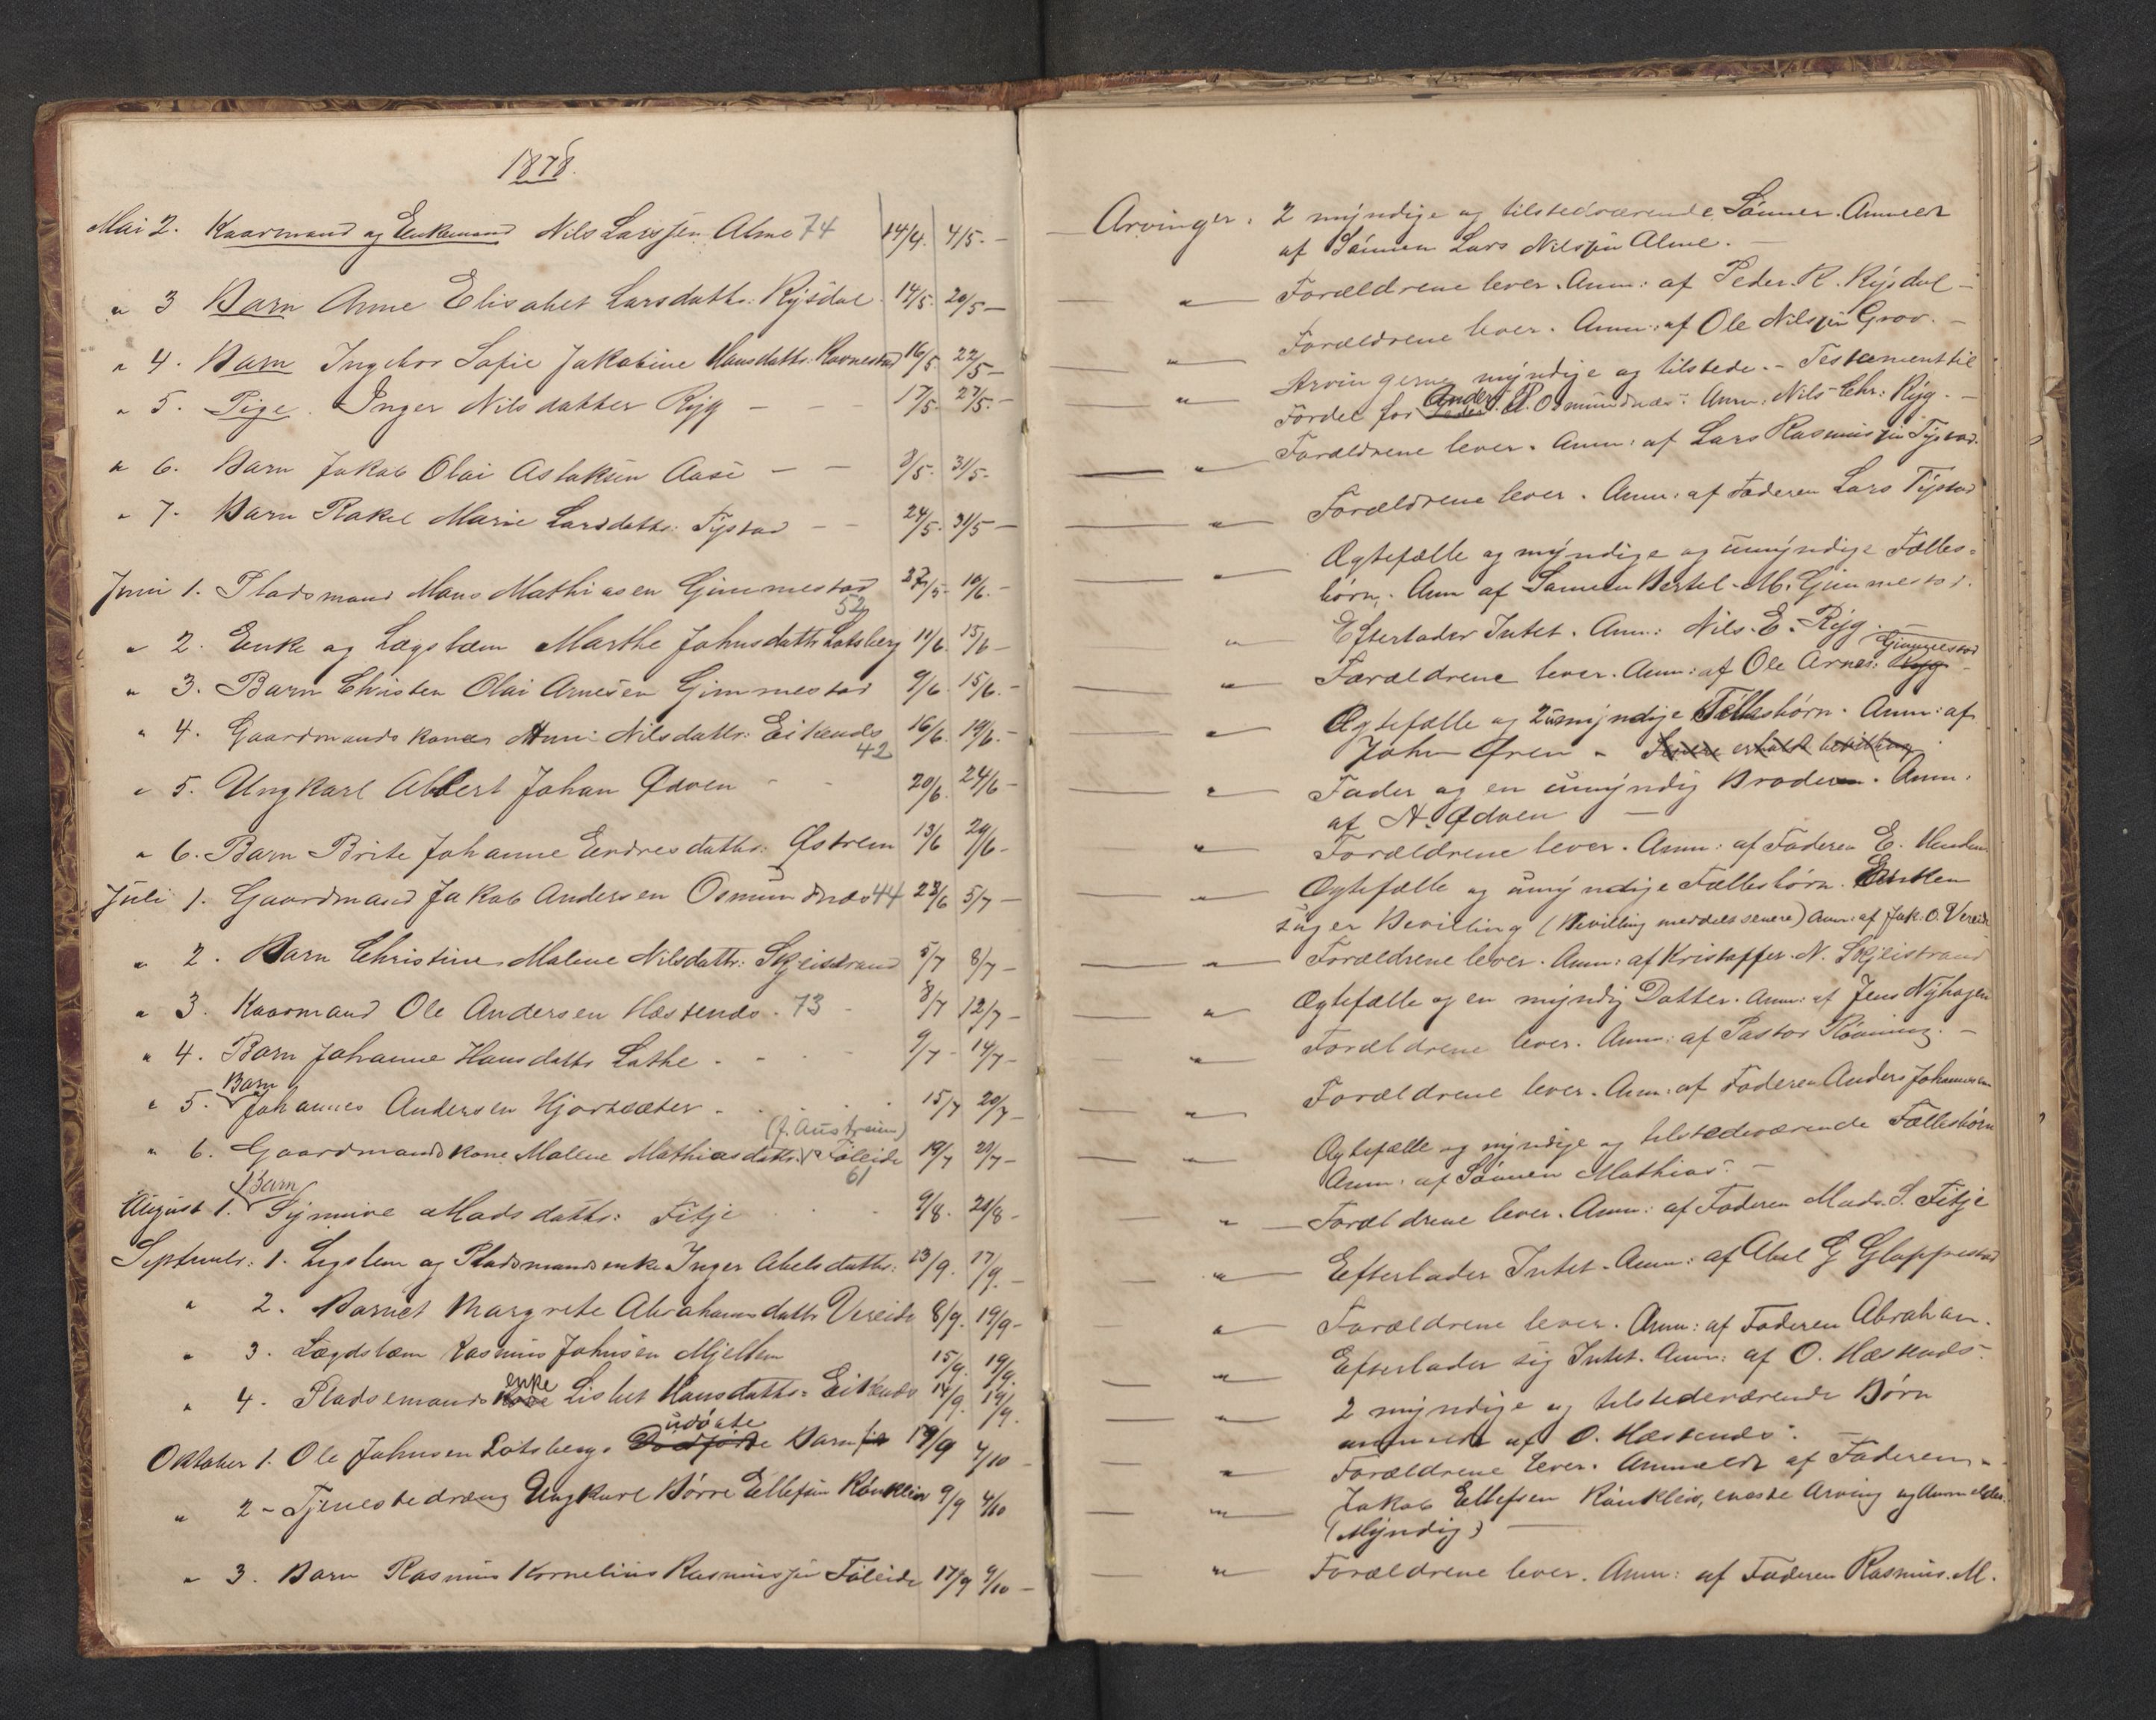 1878.
Mai 2. Kaarmand og Enkemand Nils Larssen Alme 74 14/4. 4/5. –
" 3 Barn Anne Elisabet Larsdattr: Rysdal 14/5. 20/5 –
" 4. Barn Ingebor Sofie Jakobine Hansdattr. Ravnestad 16/5. 22/5 –
" 5. Pige. Inger Nilsdatter Ryg – – 17/5. 27/5. –
" 6. Barn Jakob Olai Aslaksen Aase – – 8/5. 31/5.
" 7. Barn Rakel Marie Larsdattr: Tystad – – 24/5. 31/5 –
Juni 1. Pladsmand Mons Mathiasen Gimmestad 27/5. 10/6. –
52
" 2. Enke og Lægslem Marthe Johnsdattr Lotsberg 11/6. 15/6 –
" 3. Barn Christen Olai Arnesen Gimmestad 9/6. 15/6. –
" 4. Gaardmandskones Anne Nilsdattr: Eikenæs 16/6. 19/6. –
42
" 5. Ungkarl Albert Johan Ødven – – 20/6. 24/6 –
" 6. Barn Brite Johanne Endresdattr: Østrem 13/6 29/6 –
Juli 1. Gaardmand Jakob Andersen Osmundnæs 44 23/6 5/7 –
" 2. Barn Christine Malene Nilsdattr: Skjeistrand 5/7 8/7 –
" 3. Kaarmand Ole Andersen Hestenæs. 73 – 8/7 12/7 –
" 4. Barn Johanne Hansdattr Lothe . – . – 9/7 – 14/7 –
Barn
" 5. Johannes Andersen Hjortsæter . . . . 15/7 20/7 –
(f. Austreim)
" 6. Gaardmandskone Malene Mathiasdattr: Føleide 19/7 29/7 –
61
Barn
August 1. Synnive Madsdattr: Fitje . . . 9/8. 20/8 –
Septembr: 1. Legslem og Pladsmandsenke Inger Abelsdattr: 13/9. 17/9. –
" 2. Barnet Margrete Abrahamsdattr Vereide 8/9. 19/9 –
" 3. Lægdslem Rasmus Johnsen Mjellem 15/9. 19/9.
enke
" 4. Pladsemands Kone Lisbet Hansdattr: Eikenæs 14/9. 19/9.
udøbte
Oktober 1. Ole Johnsen Lotsbergs Dødfødte Barn 19/9 4/10 –
" 2 – Tjenestedreng Ungkarl Børre Ellefsen Rønklev 9/9 4/10
" 3. Barn Rasmus Kornelius Rasmussen Føleide 17/9 9/10 –
Arvinger: 2 myndige og tilstedværende Sønner. Anmeldt
af Sønnen Lars Nilsen Alme. –
" Forældrene lever. Anm: af Peder R. Rysdal –
" Forældrene lever. Anm: af Ole Nilsen Grov. –
" Arvingerne myndige og tilstede. – Testament til
Anders
Fordel for P. Osmundnæs. Anm. Nils Chr: Ryg. –
" Forældrene lever. Anm: af Lars Rasmussen Tystad.
" Forældrene lever. Anm: af Faderen Lars Tystad
" Ægtefælle og myndige og umyndige Fælles-
børn. Anm af Sønnen Bertel M. Gimmestad.
" Efterlader Intet. Anm: Nils E. Ryg. –
Gimmestad
" Forældrene lever. Anm: af Ole Arnes: Ryg –
" Ægtefælle og 2 umyndige Fællesbørn. Anm: af
John Øren – Senere erholdt bevilling
" Fader og en umyndig Broder. Anm.
af A. Ødven –
" Forældrene lever. Anm: af Faderen E.
" Ægtefælle og umyndige Fællesbørn. Enken
søger Bevilling (Bevilling meddelt senere) Anm: af Jak: O. Vereide
" Forældrene lever. Anm: af Kristoffer N. Skjeistrand
" Ægtefælle og en myndig Datter. Anm: af Jens Nyhagen
" Forældrene lever. Anm: af Pastor Rønning. –
" Forældrene lever. Anm: af Faderen Anders Johannesen
" Ægtefælle og myndige og tilstedeværende Fællesbørn
Anm: af Sønnen Mathias. –
" Forældrene lever. Anm: af Faderen Mads S. Fitje
" Efterlader Intet. Anm: af Abel G Gloppestad
" Forældrene lever. Anm: af Faderen Abraham.
" Efterlader sig Intet. Anm: af O. Hestenæs.
" 2 myndige og tilstedeværende Børn
anmeldt af O. Hestenæs. –
" Forældrene lever. Anmeldt af Faderen –
" Jakob Ellefsen Rønklev, eneste Arving og Anmelder.
(Myndig) –
" Forældrene lever. Anm: af Faderen Rasmus M.